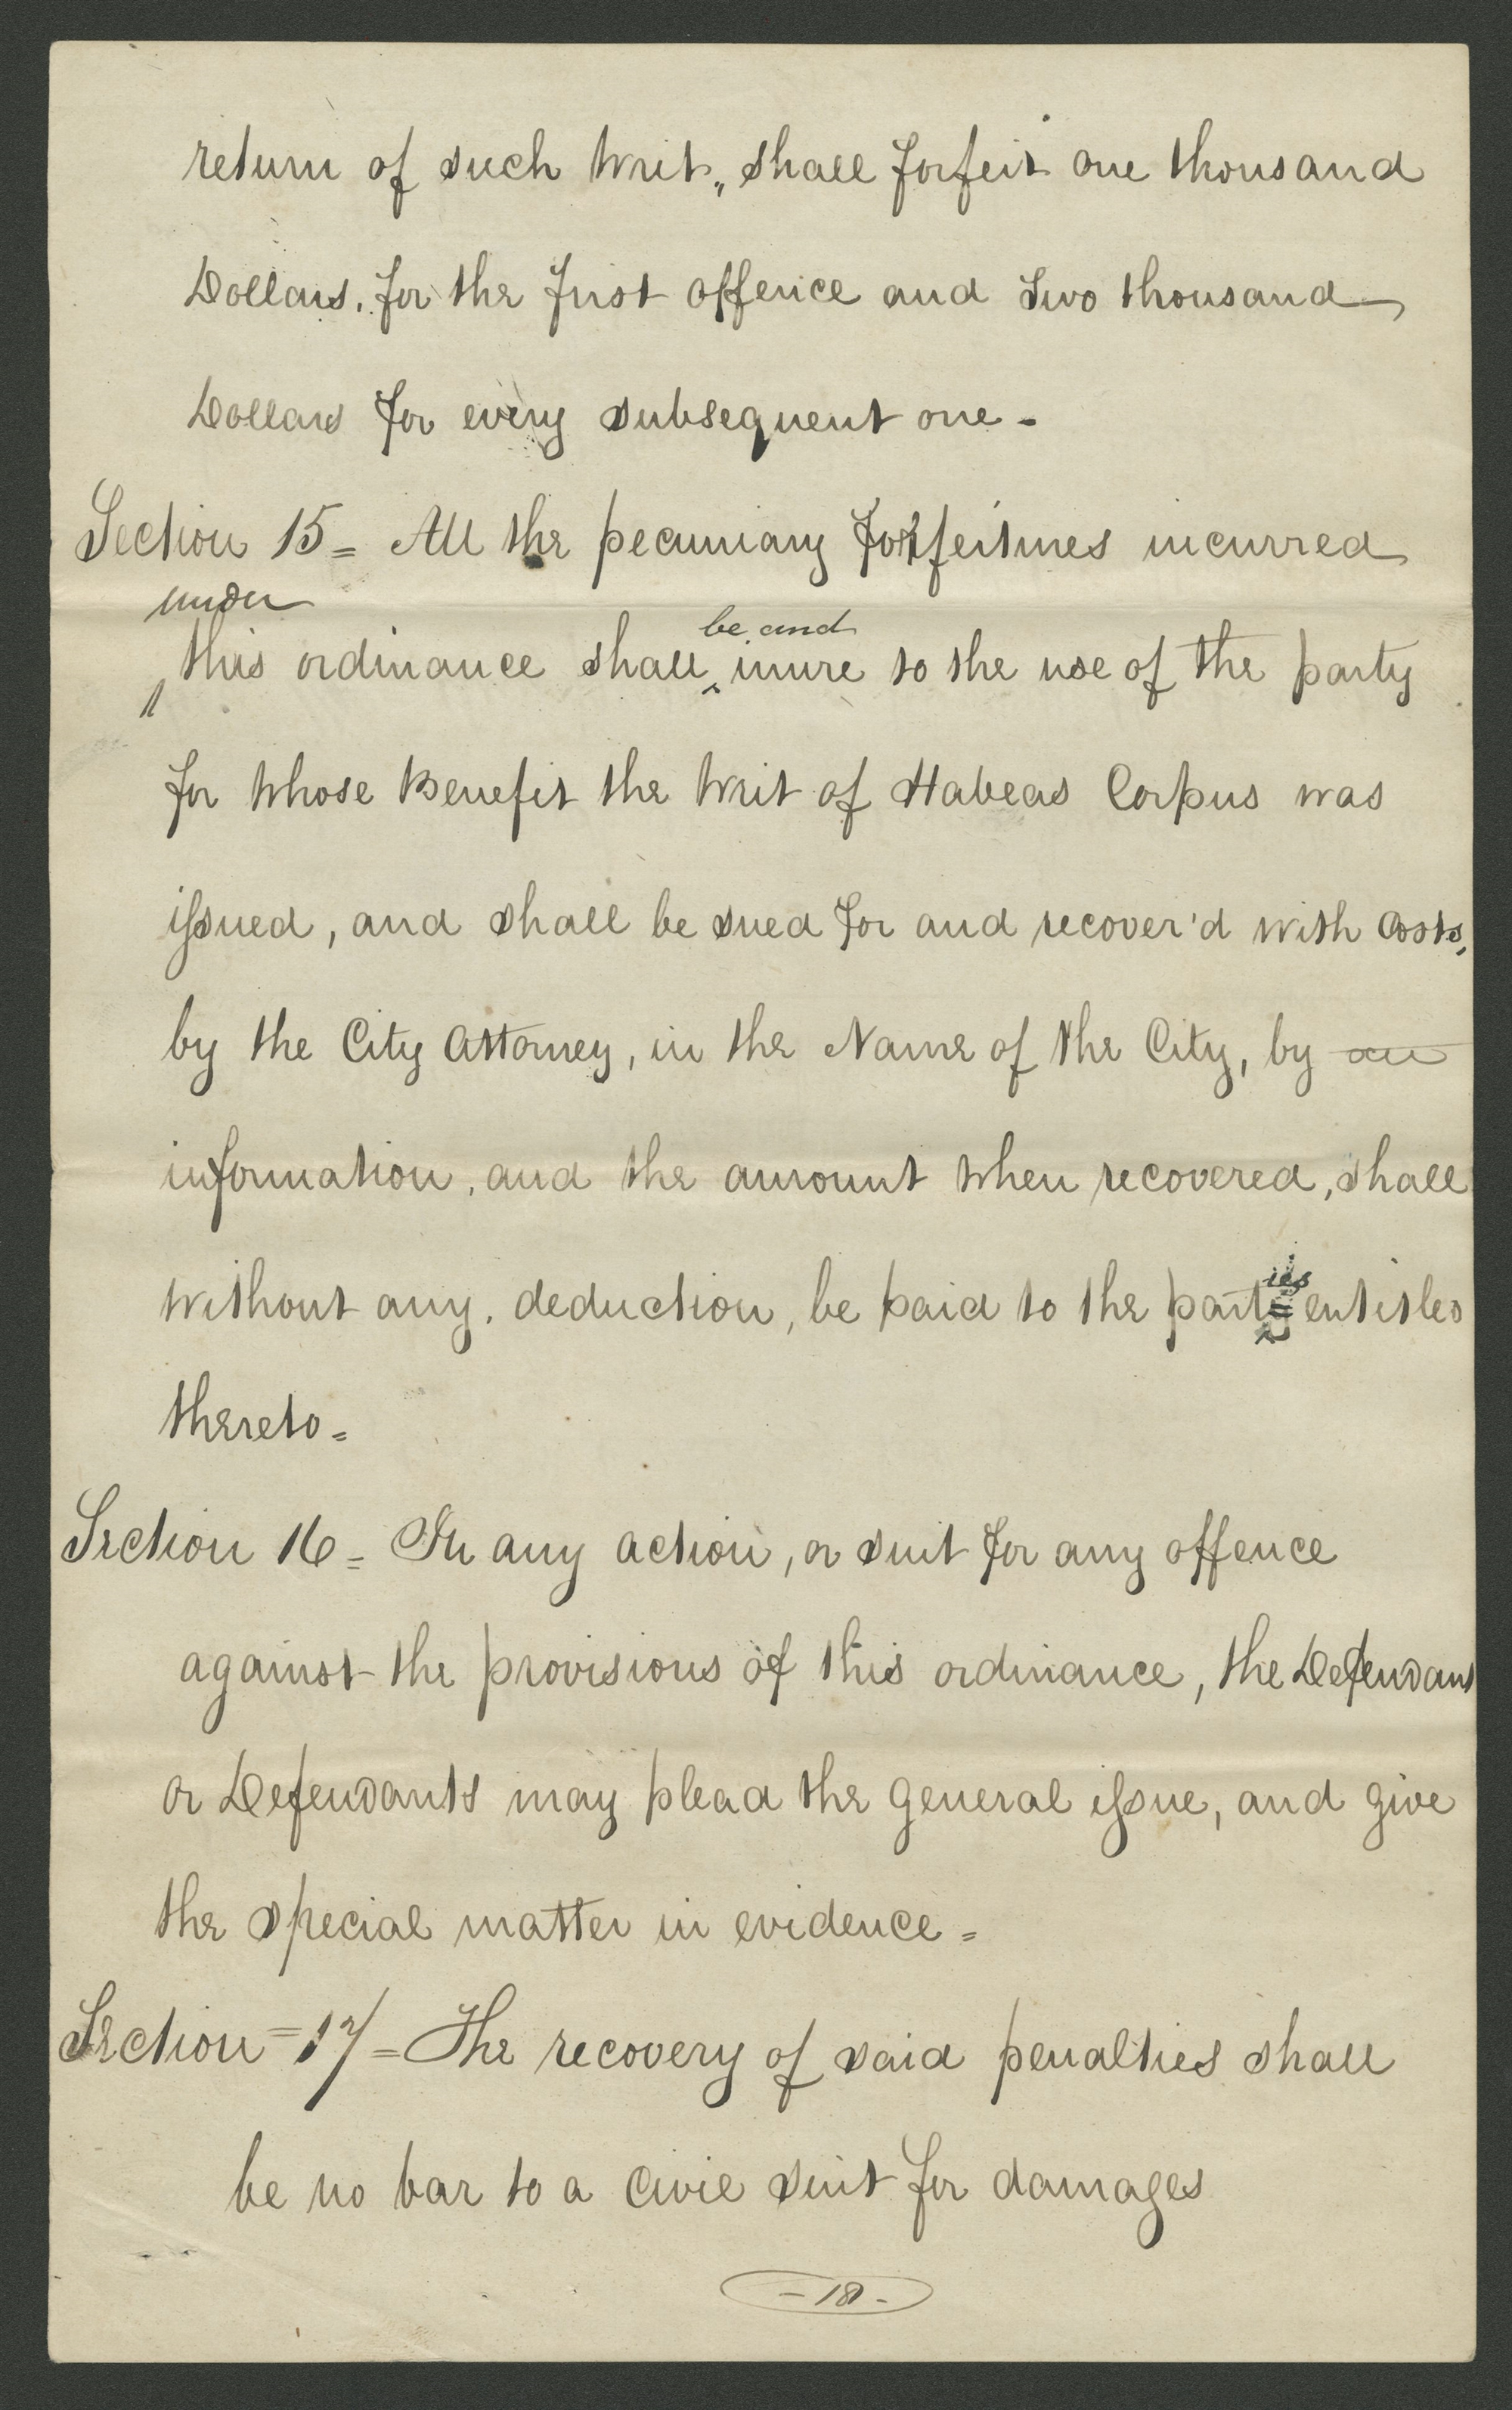 return of such Writ, shall forfeit one thousand
Dollars, for the first offence and Two thousand
Dollars for every subsequent one -
Section 15 = All the pecuniary Forfeitures incurred
under
be and
this ordinance shall ‸ inure to the use of the party
for whose Benefit the Writ of Habeas Corpus was
issued, and shall be sued for and recover'd with Costs,
by the City Attorney, in the Name of the City, by an
information, and the amount when recovered, shall
without any, deduction, be paid to the parties entitled
thereto =
Section 16 = In any action, or suit for any offence
against the provisions of this ordinance, the Defendant
or Defendants may plead the General issue, and give
the special matter in evidence =
Section = 17 = The recovery of said penalties shall
be no bar to a Civil suit for damages
- 18 -